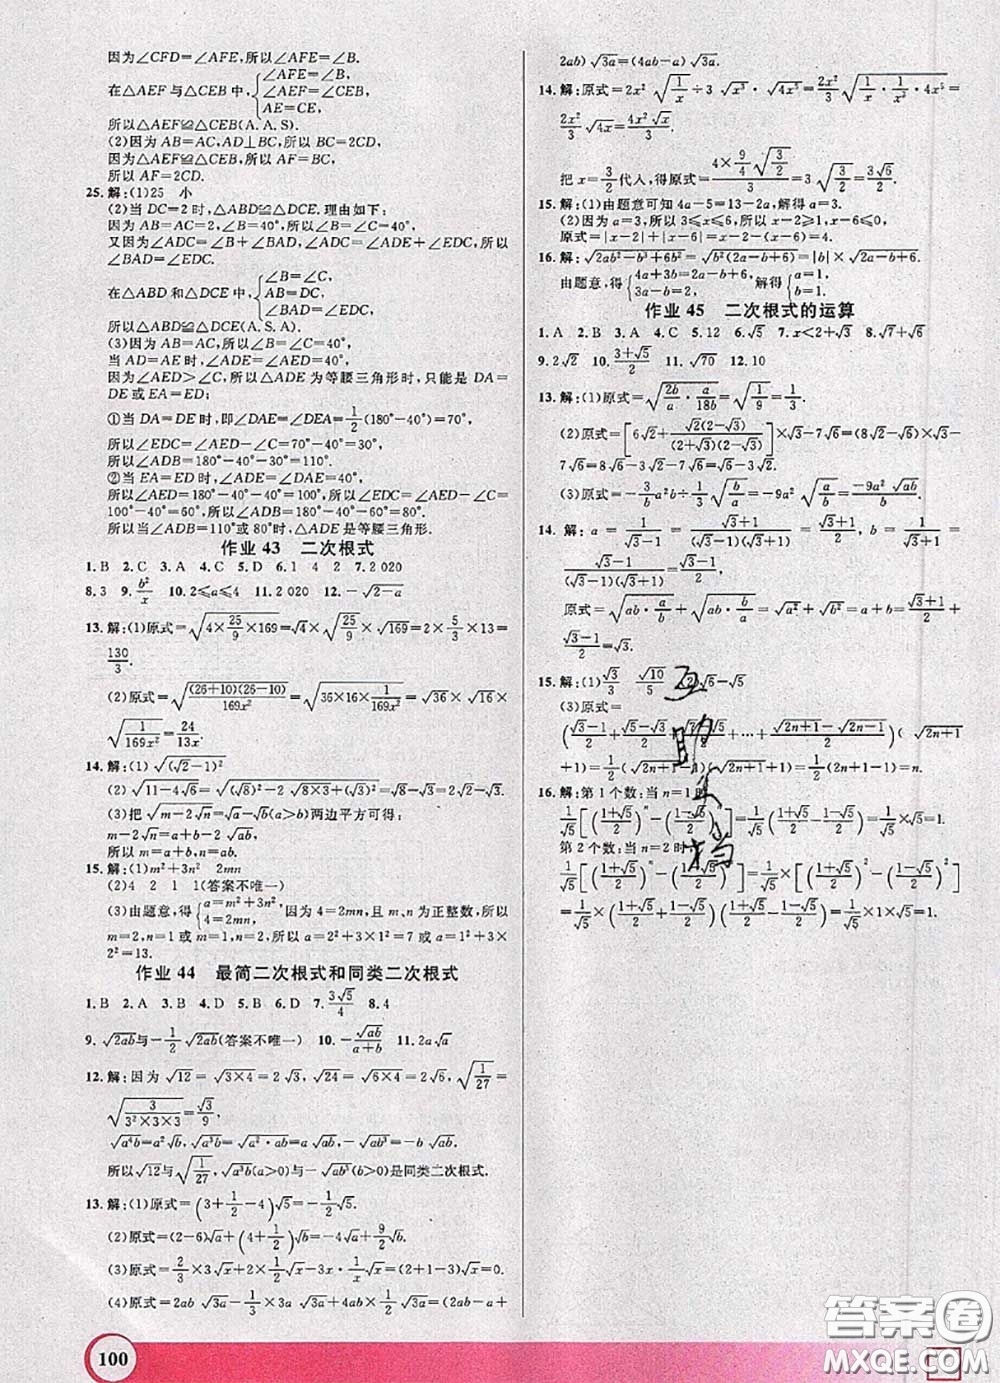 因为∠CFD=∠AFE,所以∠AFE=∠B.
在△AEF与△CEB中,{∠AFE=∠B, ∠AEF=∠CEB, AE=CE,
所以△AEF≌△CEB(A.A.S).
(2)因为AB=AC,AD⊥BC,所以BC=2CD.
因为△AEF≌△CEB,所以AF=BC.
所以AF=2CD.
25.解:(1)25 小
(2)当DC=2时,△ABD≌△DCE.理由如下:
因为AB=AC=2,∠B=40°,所以∠C=∠B=40°.
又因为∠ADC=∠B+∠BAD,∠ADC=∠ADE+∠EDC,所以∠BAD=∠EDC.
在△ABD和△DCE中,{∠B=∠C, ∠BAD=∠EDC, AB=DC,
所以△ABD≌△DCE(A.A.S).
(3)因为∠B=∠C=40°,所以∠ADE=∠C=40°.
当AD=AE时,∠ADE=∠AED=40°,
因为∠AED>∠C,所以△ADE为等腰三角形时,只能是DA=
DE或AE=ED;
①当DA=DE时,即∠DAE=∠DEA=1/2(180°-40°)=70°,
所以∠EDC=∠AED-∠C=70°-40°=30°.
所以∠ADB=180°-40°-30°=110°;
②当EA=ED时,∠ADE=∠DAE=40°,
所以∠AED=180°-40°-40°=100°,所以∠EDC=∠AED-∠C=
100°-40°=60°,所以∠ADB=180°-40°-60°=80°.
所以当∠ADB=110°或80°时,△ADE是等腰三角形.
作业43 二次根式
1.B 2.C 3.A 4.C 5.D 6.1 4 2 7.2 020
8.3 9.b²/x 10.2≤a≤4 11.2 020 12.-√(2-a)
13.解:(1)原式=√(4×25/9×169)=√4×√(25/9)×√169=2×5/3×13=
130/3.
(2)原式=√((26+10)(26-10)/169x²)=√(36×16×1/169x²)=√36×√16×
√(1/169x²)=24/13x.
14.解:(1)√((√2-1)²)
(2)√(11-4√6)=√((√8)²-2√(8×3)+(√3)²)=√8-√3.
(3)把√(m-2√n)=√a-√b(a>b)两边平方可得:
m-2√n=a+b-2√ab,
所以m=a+b,n=ab.
15.解:(1)m²+3n² 2mn
(2)4 2 1 1(答案不唯一)
(3)由题意,得{a=m²+3n², 4=2mn, 因为4=2mn,且m、n为正整数,所以
m=2,n=1或m=1,n=2.所以a=2²+3×1²=7或a=1²+3×
2²=13.
作业44 最简二次根式和同类二次根式
1.B 2.A 3.A 4.C 5.D 6.D 7.3√5/4 8.4
9.√2ab与-1/2√2ab(答案不唯一) 10.-√ab/(a+b) 11.2a√a
12.解:因为√12=√(3×4)=2√3,√24=√(6×4)=2√6,√(1/27)=
√(3/(3²×3×3))=√3/9,
√(a⁴b)=a²√b,√(a³b)=√(a²·ab)=a√ab(a>0),-√(ab³)=-b√ab,
所以√12与√(1/27),√(a³b)(a>0)与-√(ab³)(b>0)是同类二次根式.
13.解:(1)原式=(3+1/2-4)√5=-1/2√5.
(2)原式=(2-6)√a+(4+1/2)√b=-4√a+9/2√b.
(3)原式=2/3×3√x+6×1/2√x-3x·1/x√x=(2+1-3)√x=0.
(4)原式=2ab√3a-1/3×3a√3a+4ab×1/2√3a=(2ab-a+
2ab)√3a=(4ab-a)√3a.
14.解:原式=2x²√(1/x)÷3√x³·√4x⁵=2x²/3√(1/x·1/x³·4x⁵)=
2x²/3√4x=4x²√x/3.
把x=3/2代入,得原式=4×9/4√(3/2)/3=3√(3/2)=3√6/2.
15.解:(1)由题意可知4a-5=13-2a,解得a=3.
(2)因为a=3,所以3≤x≤6,所以x-2>0,x-6≤0,
原式=|x-2|+|x-6|=x-2-(x-6)=4.
16.解:√(2ab²-b³+6b²)=√(b²(2a-b+6))=|b|×√(2a-b+6).
由题意,得{4a+3b=2a-b+6, 3a-b=2, 解得{a=1, b=1.
作业45 二次根式的运算
1.A 2.B 3.A 4.C 5.12 6.√5 7.x<2+√3 8.√7+√6
9.2√2 10.(3+√5)/2 11.√70 12.10
13.解:(1)原式=√(2b/a·a/18b)=√(1/9)=1/3.
(2)原式=[6√2+√2(2-√3)/((2+√3)(2-√3))]×√3-7√6=(8√2-√6)×√3-
7√6=8√6-3√2-7√6=√6-3√2.
(3)原式=-3/3a²b÷√(b/a)=-9a²√(a/b)=-9a²√ab/b.
14.解:a=1/(√3-1)=(√3+1)/((√3-1)(√3+1))=(√3+1)/2,b=1/(√3+1)=
(√3-1)/((√3-1)(√3+1))=(√3-1)/2.
原式=√(ab·a/b)+√(ab·b/a)=√a²+√b²=a+b=(√3+1)/2+
(√3-1)/2=√3.
15.解:(1)√3/3 √10/5 (2)√6-√5
(3)原式=
((√3-1)/2+(√5-√3)/2+(√7-√5)/2+…+(√(2n+1)-√(2n-1))/2)(√(2n+1)
+1)=1/2(√(2n+1)-1)(√(2n+1)+1)=1/2(2n+1-1)=n.
16.解:第1个数:当n=1时,
1/√5[((1+√5)/2)ⁿ-((1-√5)/2)ⁿ]=1/√5((1+√5)/2-(1-√5)/2)=1/√5×√5=1.
第2个数:当n=2时,
1/√5[((1+√5)/2)ⁿ-((1-√5)/2)ⁿ]=1/√5×[((1+√5)/2)²-((1-√5)/2)²]
=1/√5×((1+√5)/2+(1-√5)/2)((1+√5)/2-(1-√5)/2)=1/√5×1×√5=1.
互助文档
100
答案卷
MXQE.COM